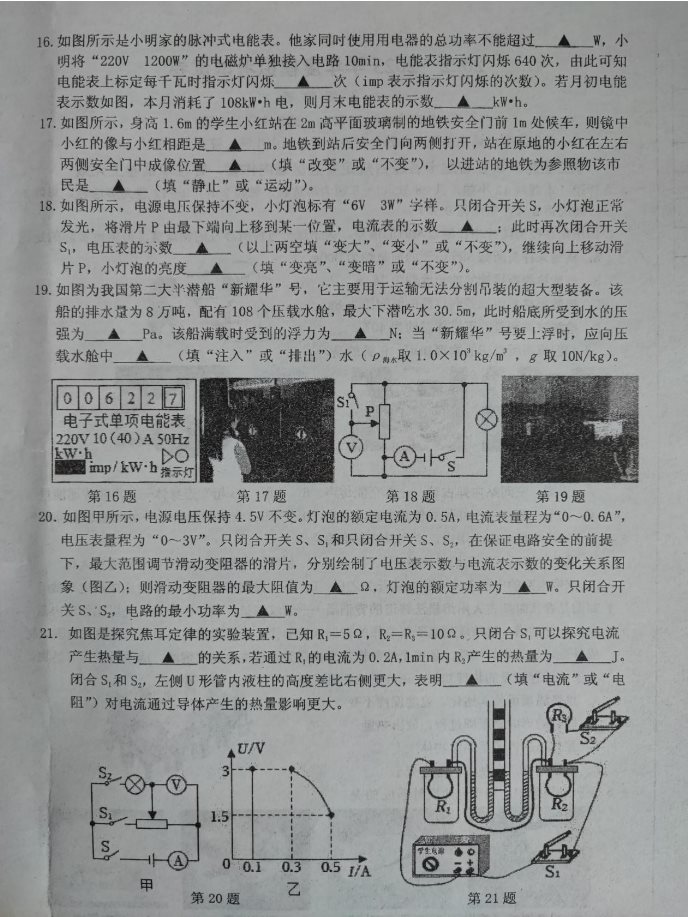 16. 如图所示是小明家的脉冲式电能表。他家同时使用用电器的总功率不能超过▲W，小
明将“220V 1200W”的电磁炉单独接入电路10min，电能表指示灯闪烁640次，由此可知
电能表上标定每千瓦时指示灯闪烁▲次（imp表示指示灯闪烁的次数）。若月初电能
表示数如图，本月消耗了108kW•h电，则月末电能表的示数▲kW•h。
17. 如图所示，身高1.6m的学生小红站在2m高平面玻璃制的地铁安全门前1m处候车，则镜中
小红的像与小红相距是▲m。地铁到站后安全门向两侧打开，站在原地的小红在左右
两侧安全门中成像位置▲（填“改变”或“不变”），以进站的地铁为参照物该市
民是▲（填“静止”或“运动”）。
18. 如图所示，电源电压保持不变，小灯泡标有“6V 3W”字样。只闭合开关S，小灯泡正常
发光，将滑片P由最下端向上移到某一位置，电流表的示数▲；此时再次闭合开关
S₁，电压表的示数▲（以上两空填“变大”、“变小”或“不变”），继续向上移动滑
片P，小灯泡的亮度▲（填“变亮”、“变暗”或“不变”）。
19. 如图为我国第二大半潜船“新耀华”号，它主要用于运输无法分割吊装的超大型装备。该
船的排水量为8万吨，配有108个压载水舱，最大下潜吃水30.5m，此时船底所受到水的压
强为▲Pa。该船满载时受到的浮力为▲N；当“新耀华”号要上浮时，应向压
载水舱中▲（填“注入”或“排出”）水（ρ海水取1.0×10³kg/m³，g取10N/kg）。
0 0 6 2 2 7
电子式单项电能表
220V 10(40)A 50Hz
kW·h
imp/kW·h 指示灯
S₁ P V A S
第16题 第17题 第18题 第19题
20. 如图甲所示，电源电压保持4.5V不变。灯泡的额定电流为0.5A，电流表量程为“0～0.6A”，
电压表量程为“0～3V”。只闭合开关S、S₁和只闭合开关S、S₂，在保证电路安全的前提
下，最大范围调节滑动变阻器的滑片，分别绘制了电压表示数与电流表示数的变化关系图
象（图乙）；则滑动变阻器的最大阻值为▲Ω，灯泡的额定功率为▲W。只闭合开
关S、S₂，电路的最小功率为▲W。
21. 如图是探究焦耳定律的实验装置，已知R₁=5Ω，R₂=R₃=10Ω。只闭合S₁可以探究电流
产生热量与▲的关系，若通过R₁的电流为0.2A，1min内R₂产生的热量为▲J。
闭合S₁和S₂，左侧U形管内液柱的高度差比右侧更大，表明▲（填“电流”或“电
阻”）对电流通过导体产生的热量影响更大。
S₂ V
S₁
S A
甲
U/V
3
1.5
0 0.1 0.3 0.5 I/A
乙
第20题
R₃
S₂
R₁ R₂
学生电源
S₁
第21题